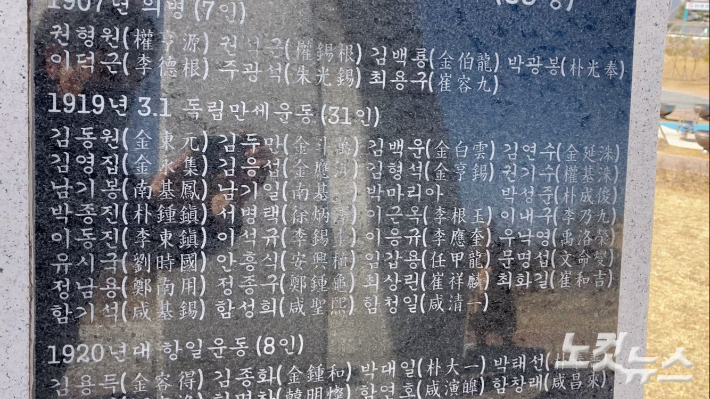 1907년 의병 (7인)
권형원(權亨源) 권석근(權錫根) 김백룡(金伯龍) 박광봉(朴光奉)
이덕근(李德根) 주광석(朱光錫) 최용구(崔容九)
1919년 3.1 독립만세운동 (31인)
김동원(金東元) 김두만(金斗萬) 김백운(金白雲) 김연수(金延洙)
김영집(金永集) 김응섭(金應) 김형석(金亨錫) 권기수(權基洙)
남기봉(南基鳳) 남기일(南基一) 박마리아 박성준(朴成俊)
박종진(朴鍾鎭) 서병택(徐炳) 이근옥(李根玉) 이내구(李乃九)
이동진(李東鎭) 이석규(李錫) 이응규(李應奎) 우낙영(禹洛榮)
유시국(劉時國) 안흥식(安興植) 임갑용(任甲龍) 문명섭(文命燮)
정남용(鄭南用) 정종구(鄭鍾龜) 최상린(崔祥麟) 최화길(崔和吉)
함기석(咸基錫) 함성희(咸聖熙) 함청일(咸清一)
1920년대 항일운동 (8인)
김용득(金容得) 김종화(金鍾和) 박대일(朴大一) 박태선(朴
함연호(咸演皥) 함창래(咸昌來)
노컷뉴스